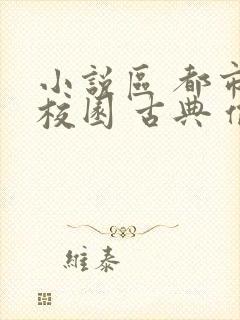 小説區 都市
校園 古典
維泰